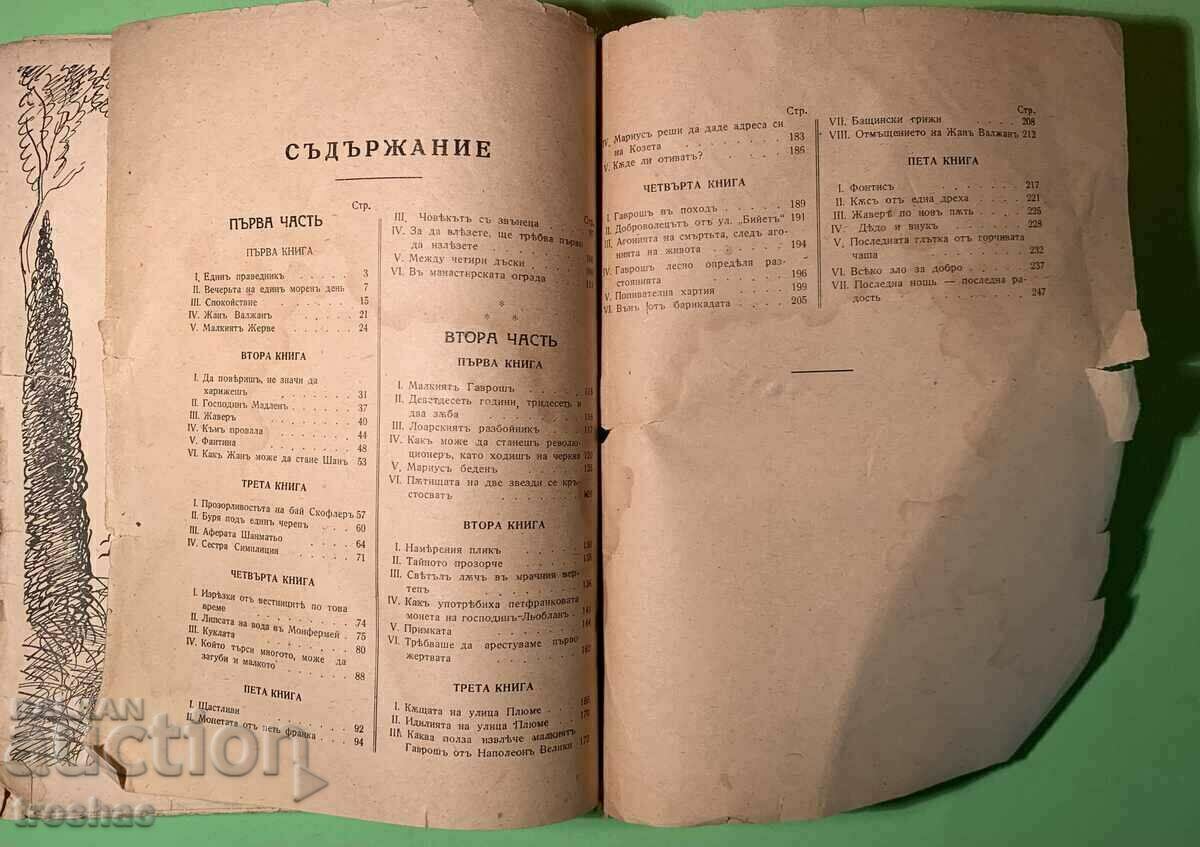 СЪДЪРЖАНИЕ
Стр.
ПЪРВА ЧАСТЬ
ПЪРВА КНИГА
I. Единъ праведникъ . . . . . . 3
II. Вечерьта на единъ морен день 7
III. Спокойствие . . . . . . 15
IV. Жанъ Валжанъ . . . . . . 21
V. Малкиятъ Жерве . . . . . . 24
ВТОРА КНИГА
I. Да повѣришъ, не значи да
харижешъ . . . . . . 31
II. Господинъ Мадленъ . . . . . . 37
III. Жаверъ . . . . . . 40
IV. Къмъ провала . . . . . . 44
V. Фантина . . . . . . 48
VI. Какъ Жанъ може да стане Шанъ 53
ТРЕТА КНИГА
I. Прозорливостьта на бай Скофлеръ 57
II. Буря подъ единъ черепъ . . . 60
III. Аферата Шанматьо . . . . 64
IV. Сестра Симплиция . . . . 71
ЧЕТВЪРТА КНИГА
I. Изрѣзки отъ вестницитѣ по това
време . . . . . . 74
II. Липсата на вода в Монфермей . 75
III. Куклата . . . . . . 80
IV. Който търси многото, може да
загуби и малкото . . . . . . 88
ПЕТА КНИГА
I. Щастливи . . . . . . 92
II. Монетата отъ петь франка . . . 94
Стр.
III. Човѣкътъ съ звънеца
IV. За да влѣзете, ще трѣбва първо
да излѣзете
V. Между четири дъски
VI. В манастирската ограда
* * *
ВТОРА ЧАСТЬ
ПЪРВА КНИГА
I. Малкиятъ Гаврошъ
II. Деветдесеть години, тридесеть и
два зѫба
III. Лоарскиятъ разбойникъ
IV. Какъ може да станешъ револю-
ционеръ, като ходишъ на черква 120
V. Мариусъ беденъ
VI. Пѫтищата на две звезди се кръ-
стосватъ
ВТОРА КНИГА
I. Намѣрения пликъ
II. Тайното прозорче
III. Свѣтълъ лѫчъ въ мрачния вер-
тепъ
IV. Какъ употрѣбиха петфранковата
монета на господинъ Льобланъ
V. Примката
VI. Трѣбваше да арестуваме първо
жертвата
ТРЕТА КНИГА
I. Кѫщата на улица Плюме
II. Идилията на улица Плюме
III. Каква полза извлѣче малкиятъ
Гаврошъ отъ Наполеонъ Велики
Стр.
IV. Мариусъ реши да даде адреса си
на Козета . . . . . . 183
V. Кѫде ли отиватъ? . . . . . . 186
ЧЕТВЪРТА КНИГА
I. Гаврошъ въ походъ . . . . . . 189
II. Доброволецътъ отъ ул. „Бийетъ" 191
III. Агонията на смъртьта, следъ аго-
нията на живота . . . . . . 194
IV. Гаврошъ лесно опредѣля раз-
стоянията . . . . . . 196
V. Попивателна хартия . . . . 199
VI. Вънъ отъ барикадата . . . . 205
Стр.
VII. Бащински грижи . . . . . . 208
VIII. Отмъщението на Жанъ Валжанъ 212
ПЕТА КНИГА
I. Фонтисъ . . . . . . 217
II. Кѫсъ отъ една дреха . . . . 221
III. Жаверъ по новъ пѫть . . . . 225
IV. Дѣдо и внукъ . . . . . . 228
V. Последната глътка отъ горчивата
чаша . . . . . . 232
VI. Всѣко зло за добро . . . . . . 237
VII. Последна нощь — последна ра-
дость . . . . . . 247
BALKAN
auction
troshac